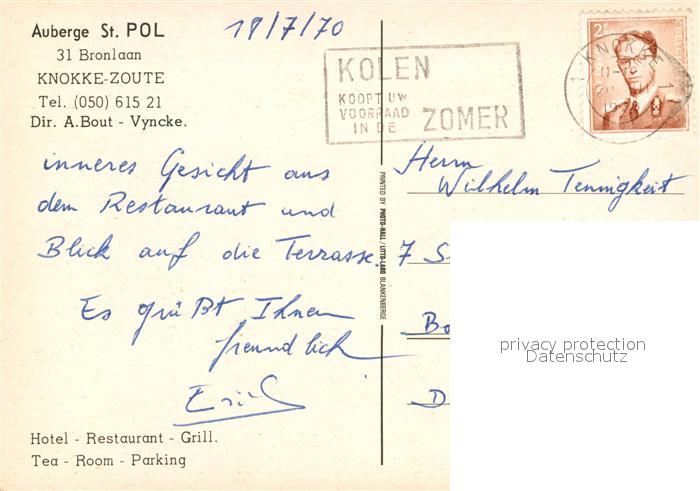 Auberge St. POL
31 Bronlaan
KNOKKE-ZOUTE
Tel. (050) 615 21
Dir. A. Bout - Vyncke.
18/7/70
KOLEN
KOOPT UW
VOORRAAD
IN DE
ZOMER
2F
KNOKKE 1
inneres Gesicht aus
dem Restaurant und
Blick auf die Terrasse.
Es grüßt Ihnen
freundlich
Eric
Hotel - Restaurant - Grill.
Tea - Room - Parking
PRINTED BY PHOTO-HALL / LITTO-LAND BLANKENBERGE
Herrn
Wilhelm Tennigkeit
7 S
Bo
D
privacy protection
Datenschutz